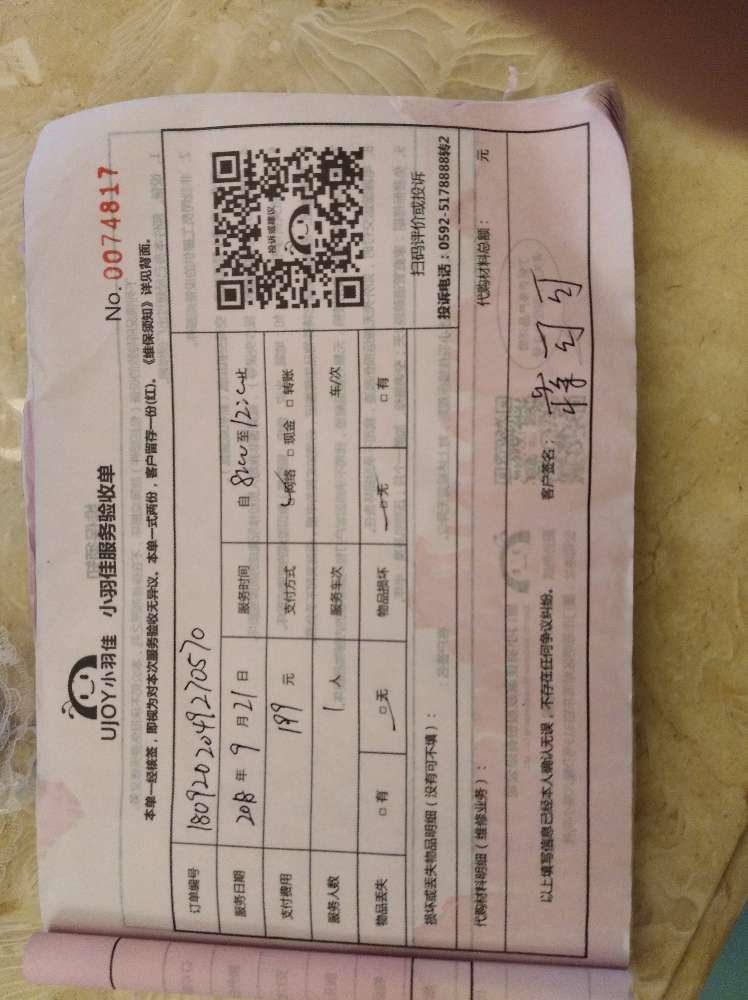 UJOY小羽佳 小羽佳服务验收单
No. 0074817
本单一经核签，即视为对本次服务验收无异议。本单一式两份，客户留存一份(红)。《维保须知》详见背面。
订单编号 1809202049270570
服务日期 2018 年 9 月 21 日 服务时间 自 8:00 至 12:00止
支付费用 199 元 支付方式 网络 □ 现金 □ 转账
服务人数 1 人 服务车次 车/次
物品丢失 □ 有 □ 无 物品损坏 □ 无 □ 有
投诉或建议
扫码评价或投诉
损坏或丢失物品明细（没有可不填）：
投诉电话：0592-5178888转2
代购材料明细（维修业务）： 代购材料总额： 元
以上填写信息已经本人确认无误，不存在任何争议纠纷。 客户签名：